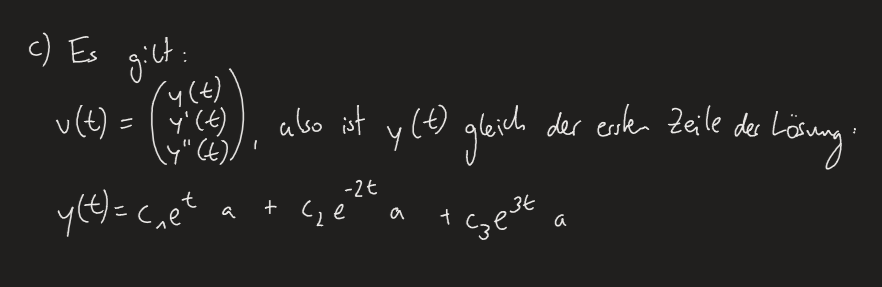 c) Es gilt:
v(t) = (y(t)
y'(t)
y''(t)), also ist y(t) gleich der ersten Zeile der Lösung:
y(t) = c₁e^t a + c₂e^-2t a + c₃e^3t a